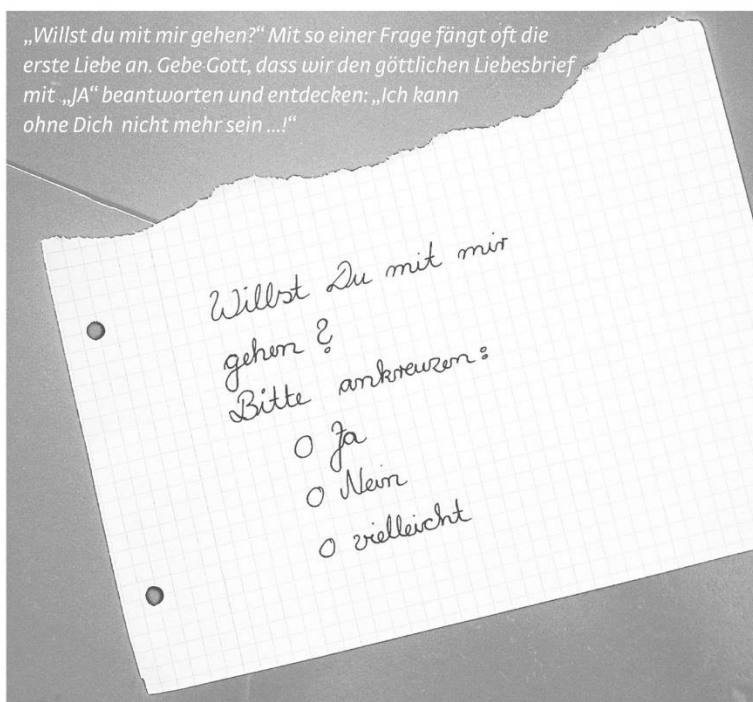 „Willst du mit mir gehen?“ Mit so einer Frage fängt oft die
erste Liebe an. Gebe Gott, dass wir den göttlichen Liebesbrief
mit „JA“ beantworten und entdecken: „Ich kann
ohne Dich nicht mehr sein ...!“
Willst Du mit mir
gehen?
Bitte ankreuzen:
O Ja
O Nein
O vielleicht